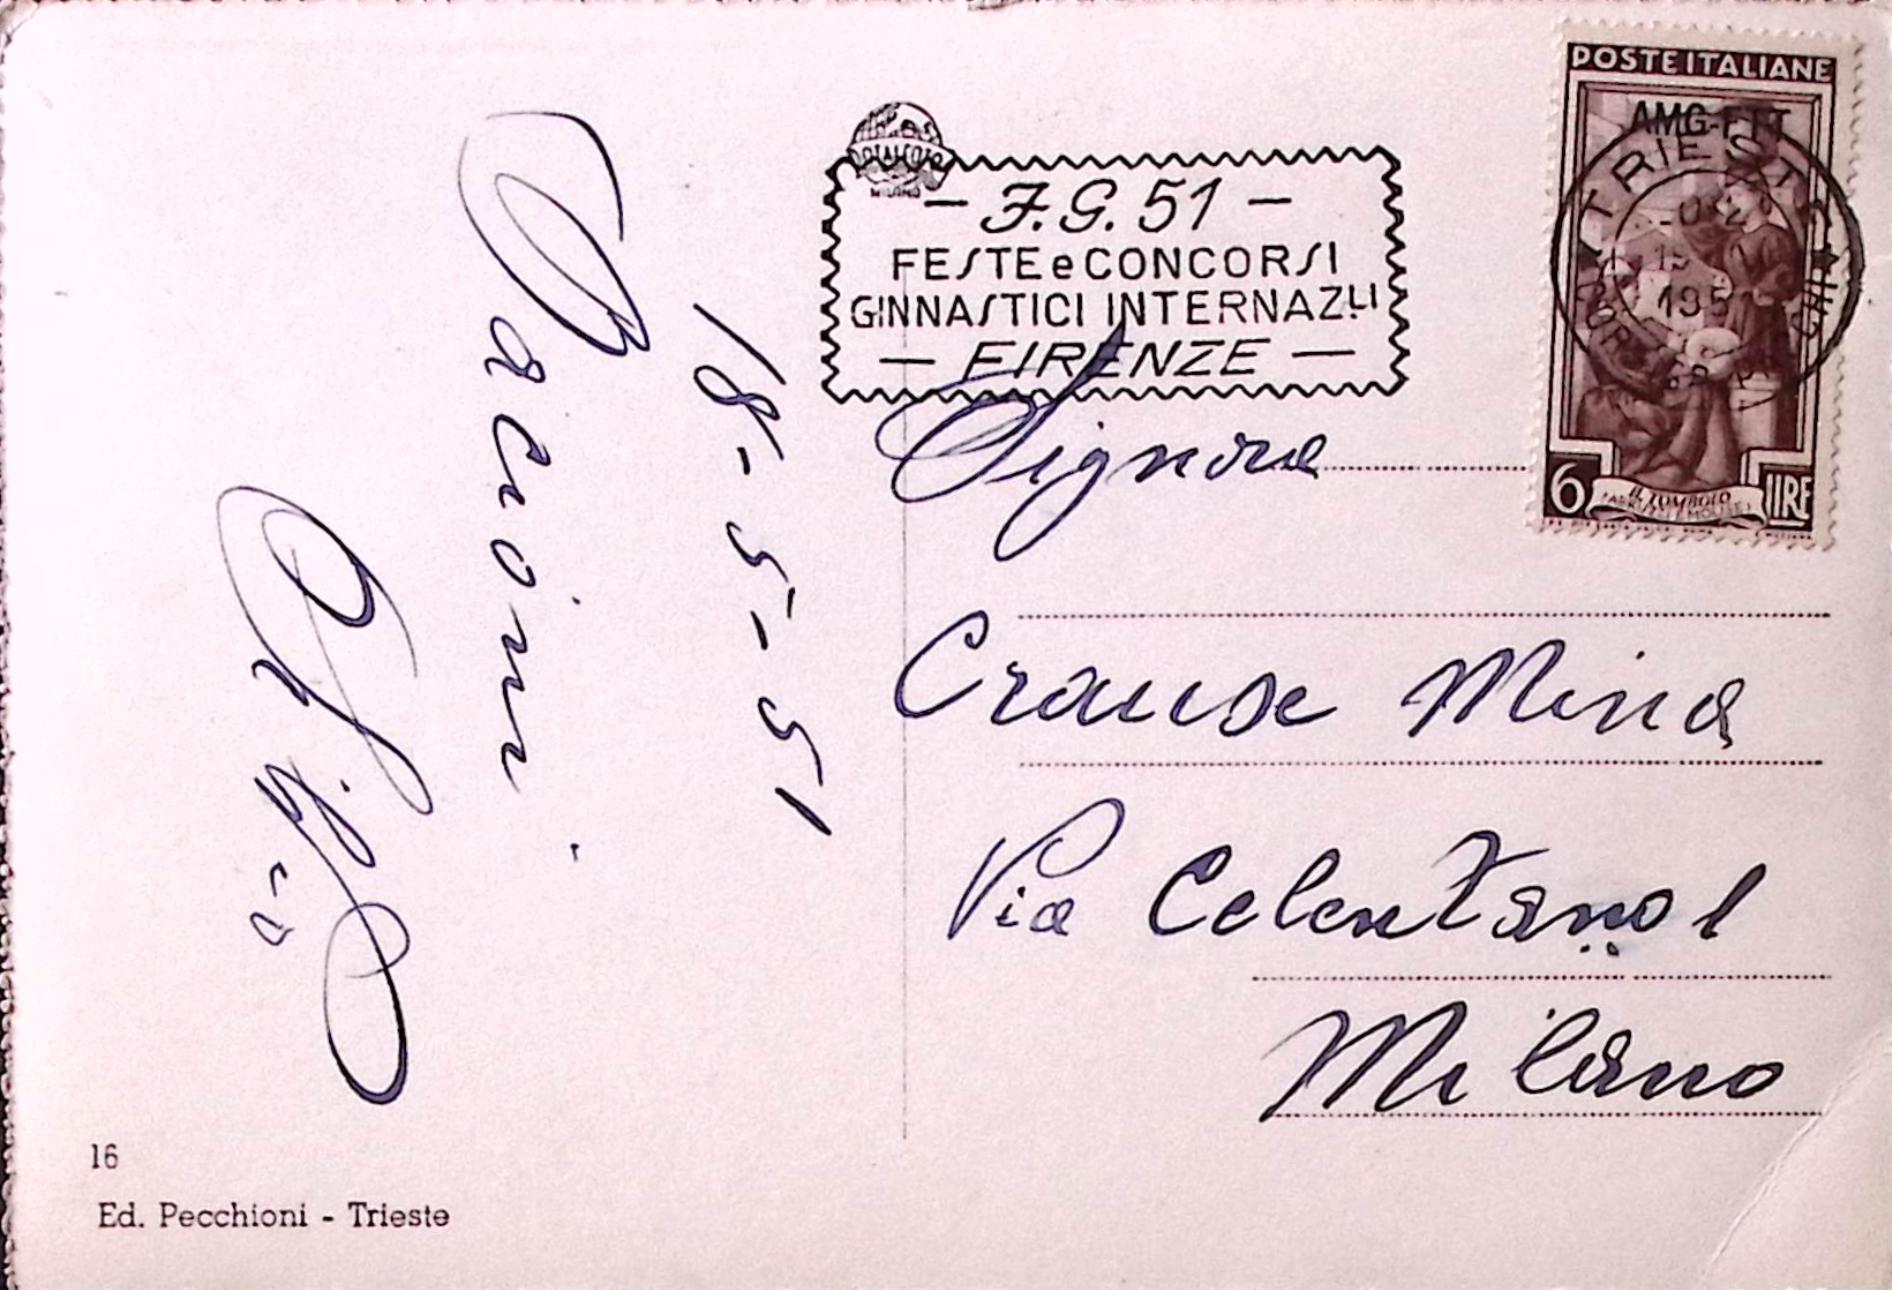 18-5-51
Bacioni
16
Ed. Pecchioni - Trieste
TOTALCOTO
MILANO
- F.G. 51 -
FESTE e CONCORSI
GINNASTICI INTERNAZLI
- FIRENZE -
POSTE ITALIANE
AMG-FTT
TRIESTE
195
6 LIRE
IL TOMBOLO
Signora
Crause Mina
Via Celentano 1
Milano